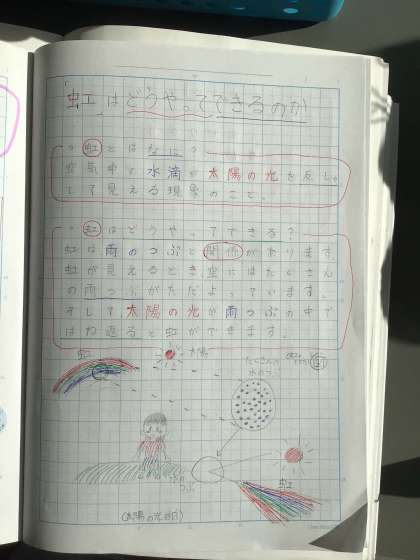 虹はどうやってできるのか
。虹とはなに？
空気中の水滴が太陽の光を反しゃ
して見える現象のこと。
。虹はどうやってできる？
虹は雨のつぶと関係があります。
虹が見えるとき空にはたくさん
の雨つぶがただよっています。
そして太陽の光が雨つぶの中で
はね返ると虹ができます。
虹
太陽
たくさんの
水のつぶ
虹
(太陽の光の白)